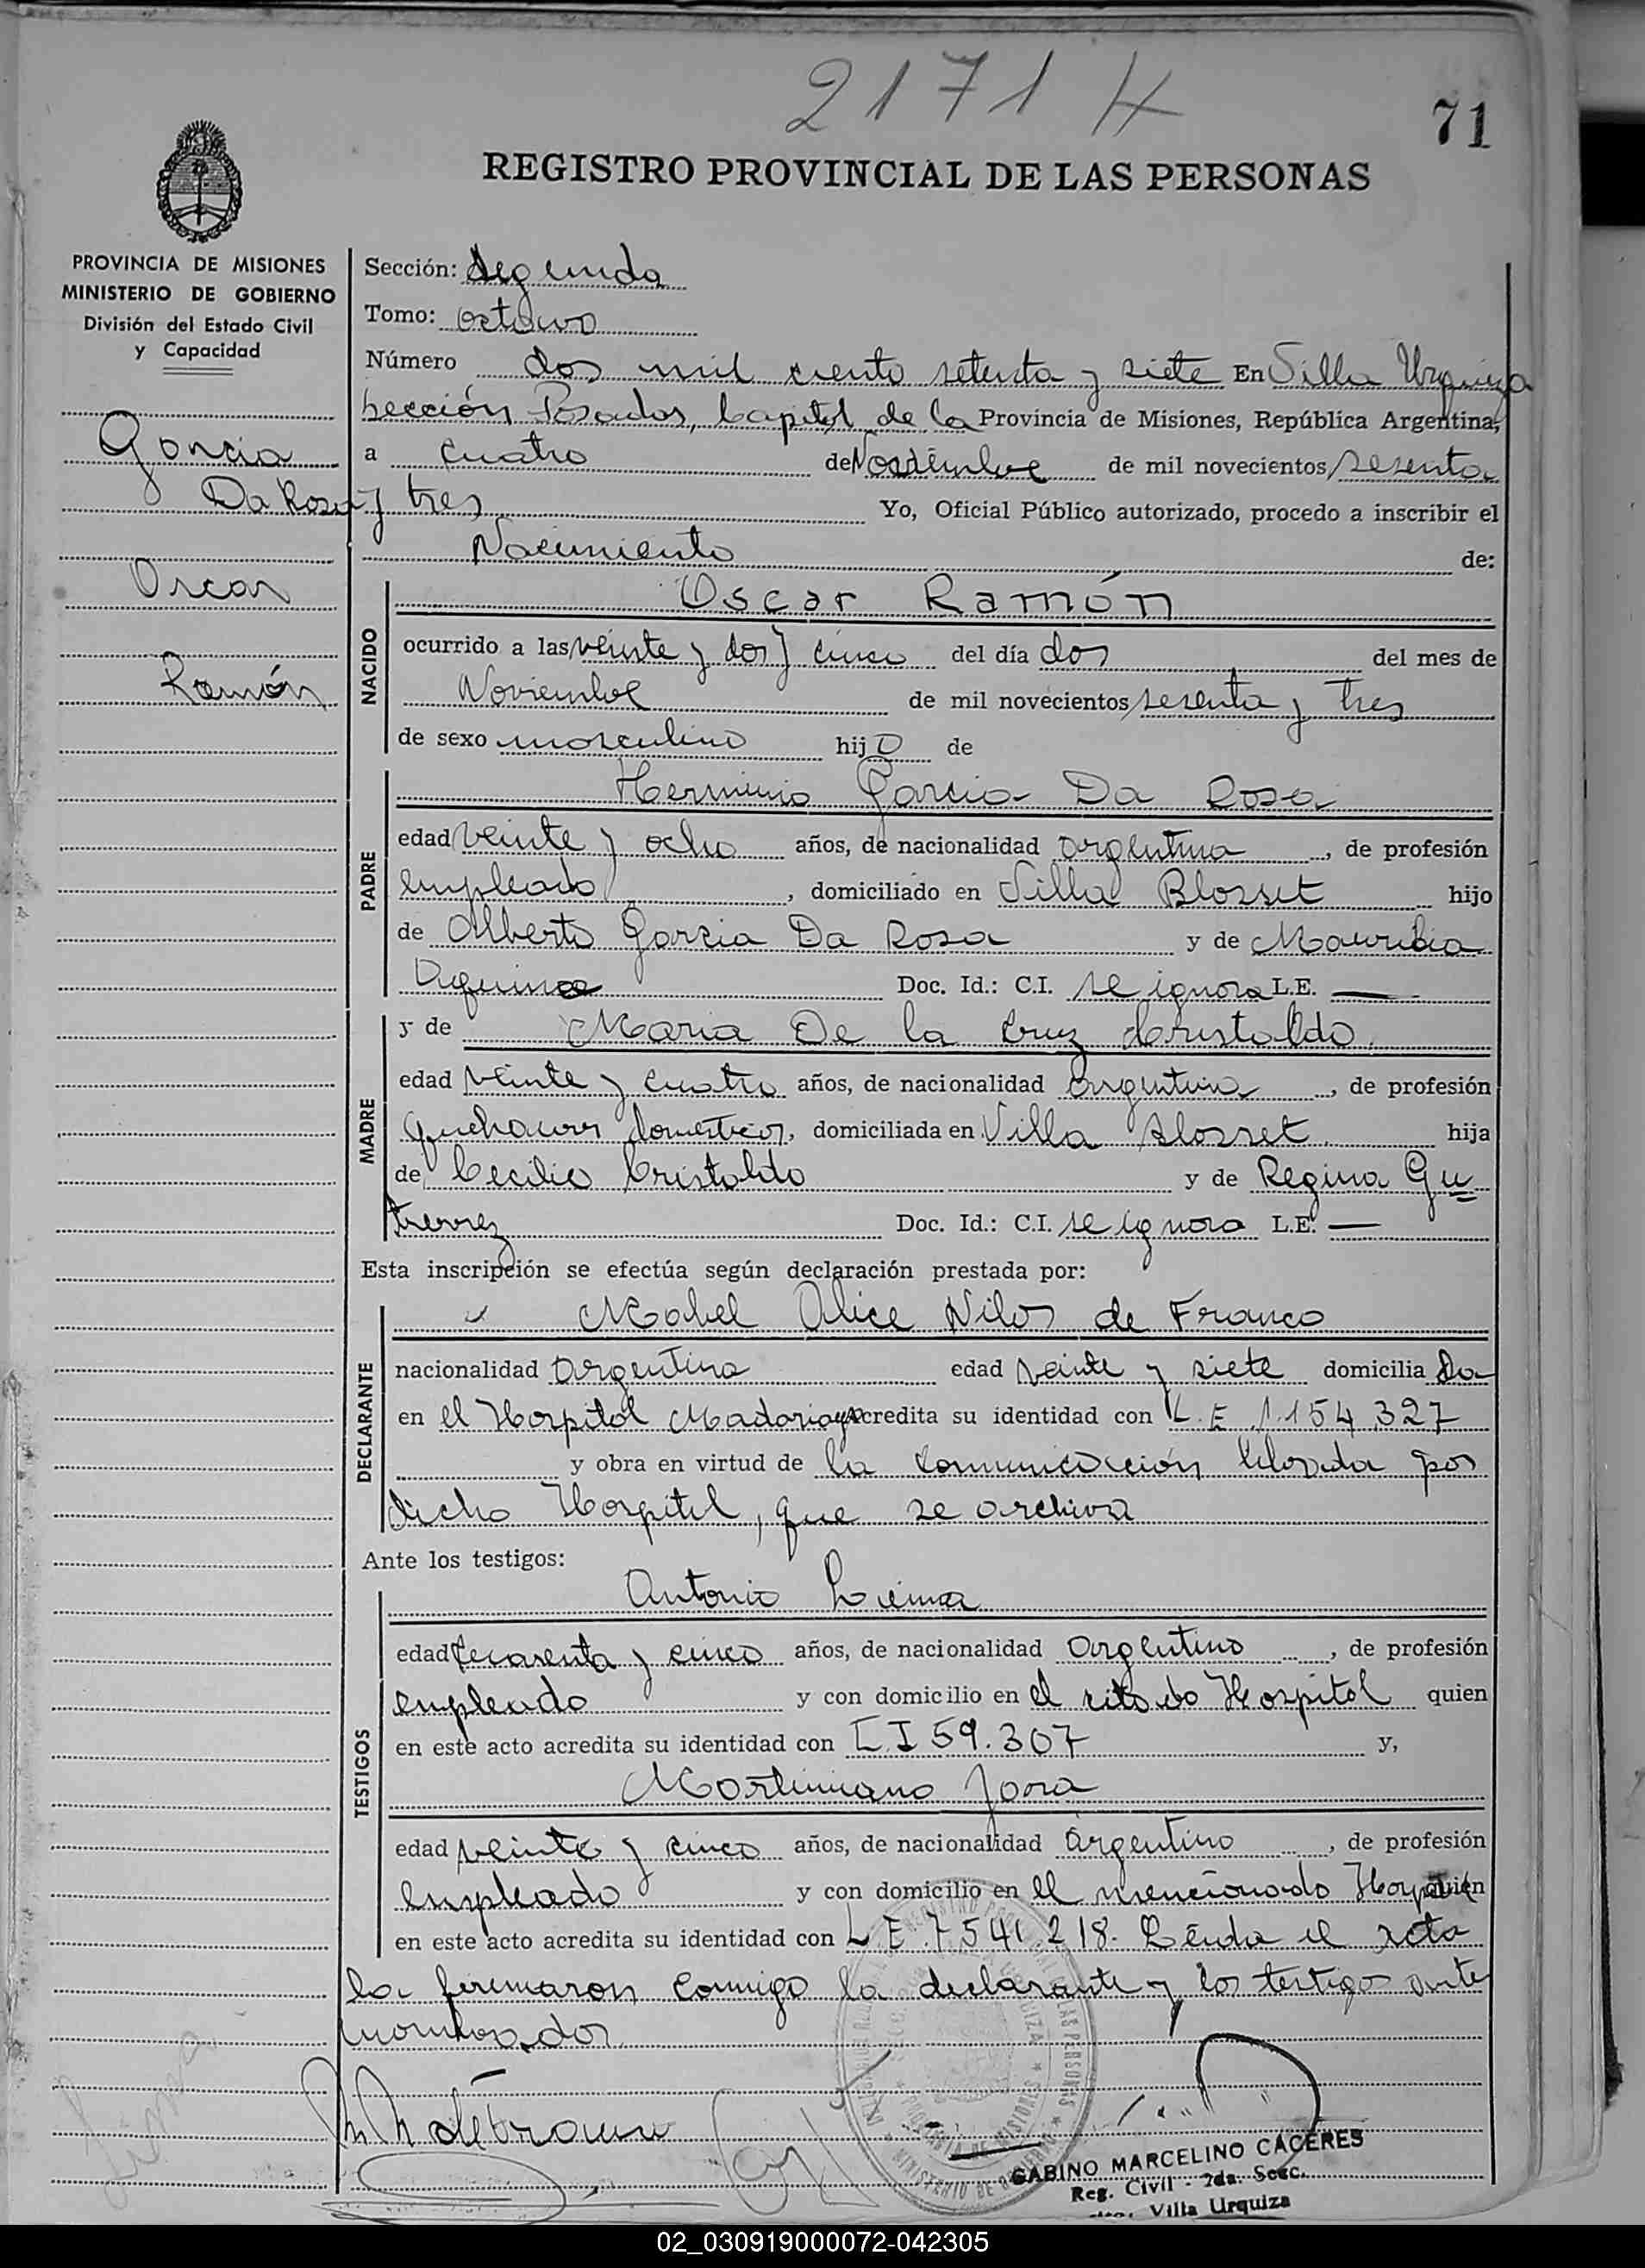 2171 H
71
REGISTRO PROVINCIAL DE LAS PERSONAS
PROVINCIA DE MISIONES
MINISTERIO DE GOBIERNO
División del Estado Civil
y Capacidad
Garcia
Da Rosa
Oscar
Ramón
Sección: Segunda
Tomo: octavo
Número dos mil ciento setenta y siete En Villa Urquiza
Sección Posadas, Capital de la Provincia de Misiones, República Argentina,
a cuatro de Noviembre de mil novecientos sesenta
y tres Yo, Oficial Público autorizado, procedo a inscribir el
Nacimiento de:
NACIDO
Oscar Ramón
ocurrido a las veinte y dos y cinco del día dos del mes de
Noviembre de mil novecientos sesenta y tres
de sexo masculino hijo de
PADRE
Herminio Garcia Da Rosa
edad veinte y ocho años, de nacionalidad argentina, de profesión
empleado, domiciliado en Villa Blosset hijo
de Alberto Garcia Da Rosa y de
Doc. Id.: C.I. se ignora L.E. —
MADRE
y de Maria De la Cruz Cristaldo
edad veinte y cuatro años, de nacionalidad argentina, de profesión
quehaceres domesticos, domiciliada en Villa Blosset hija
de Cecilio Cristaldo y de Regina Gu
tierrez Doc. Id.: C.I. se ignora L.E. —
Esta inscripción se efectúa según declaración prestada por:
DECLARANTE
Mabel Alice de Franco
nacionalidad argentina edad veinte y siete domicilia da
en el Hospital Madariaga acredita su identidad con L.E 1.154.327
y obra en virtud de la comunicación elevada por
dicho Hospital, que se archiva
Ante los testigos:
TESTIGOS
Antonio
edad cuarenta y cinco años, de nacionalidad argentino, de profesión
empleado y con domicilio en el citado Hospital quien
en este acto acredita su identidad con C.I 59.307 y,
Martiniano Jara
edad veinte y cinco años, de nacionalidad argentino, de profesión
empleado y con domicilio en el mencionado Hospital quien
en este acto acredita su identidad con L.E 7.541.218. Leida el acta
la firmaron conmigo la declarante y los testigos ante
nombrados.
GABINO MARCELINO CACERES
Reg. Civil - 2da. Secc.
Villa Urquiza
02_030919000072-042305